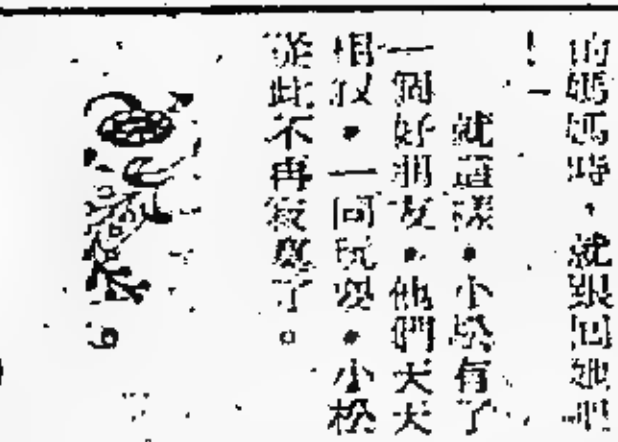 的媽媽時，就跟回她吧
！」
就這樣，小松有了
一個好朋友，他們天天
相叙，一同玩耍，小松
從此不再寂寞了。